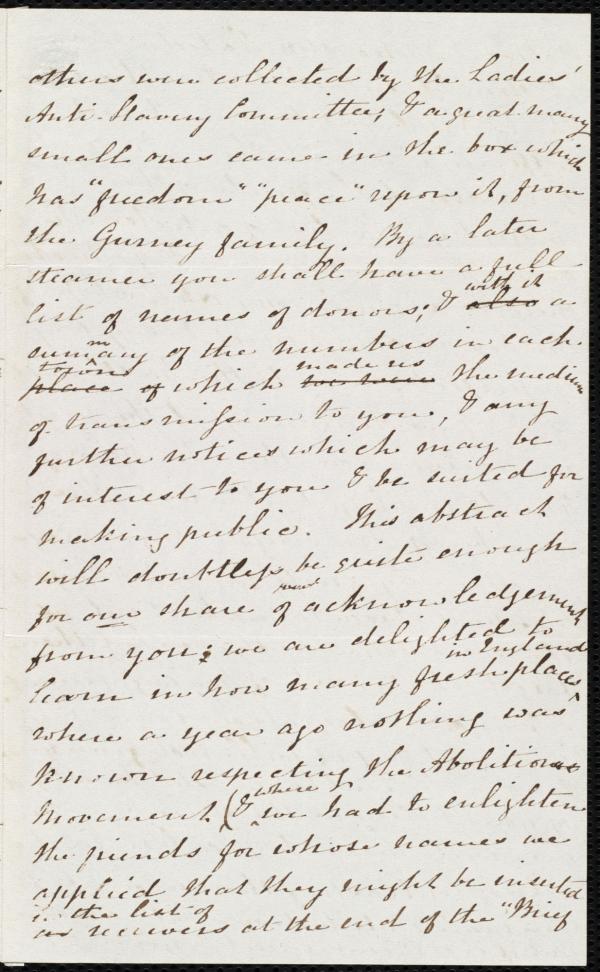 others were collected by the Ladies'
Anti-Slavery Committee, & a great many
small ones came in the box which
has "freedom" "peace" upon it, from
the Gurney family. By a later
steamer you shall have a full
with it
list of names of donors; & also a
m
sumary of the numbers in each
town made us
place of which we were the medium
of transmission to you, & any
further notices which may be
of interest to you & be suited for
making public. This abstract
will doubtless be quite enough
for our share of acknowledgement
from you; we are delighted to
in England
learn in how many fresh places
where a year ago nothing was
known respecting the Abolition
where
movement (& we had to enlighten
the friends for whose names we
applied that they might be inserted
in the list of
as receivers at the end of the "Brief